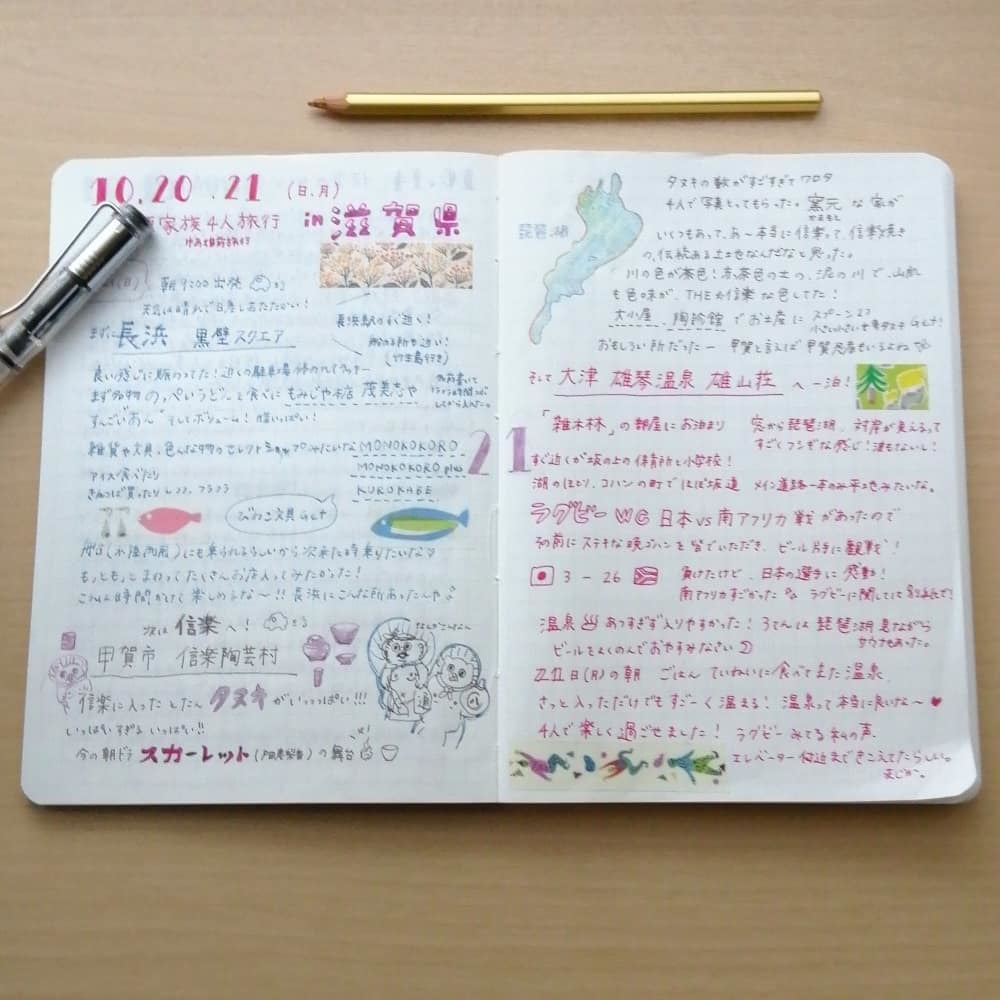 10.20.21 (日、月)
家族4人旅行 in 滋賀県
朝9:00出発
まずは 長浜 黒壁スクエア
長浜駅のすぐ近く!
船のる所も近い!
(竹生島行き)
良い感じに賑わってた! 近くの駐車場
まず名物の、のっぺいうどんを食べに もみじや本店 茂美志や
すごいあん そしてボリューム! 腹いっぱい!
雑貨や文具、色んな物のセレクトショップ MONOKOKORO
MONOKOKORO plus
アイス食べたり
KUROKABE
びわこ文具Get
(水陸両用)にも乗れるらしいから次来た時乗りたいな♡
もっともっとまわってたくさんお店入ってみたかった!
長浜にこんな所あったんや
次は 信楽へ!
甲賀市 信楽陶芸村
信楽に入ったとたん タヌキ がいっっっぱい!!!
いっぱいすぎる いっぱい!!
今の朝ドラ スカーレット (戸田恵梨香) の舞台
タヌキの数がすごすぎてワロタ
4人で写真とってもらった。窯元な家が
かまもと
いくつもあって、あ〜本当に信楽って、信楽焼き
の、伝統ある土地なんだなと思った。
琵琶湖
川の色が茶色! 赤茶色の土の、泥の川で、山肌
も色味が、THE☆信楽な色してた!
大小屋 陶珍館 でお土産に スプーン
Get!
おもしろい所だったー 甲賀と言えば甲賀忍者もいるよね
そして 大津 雄琴温泉 雄山荘 へ一泊!
「雑木林」の部屋にお泊まり
窓から琵琶湖、対岸が見えるって
すごくフシギな感じ! 波もないし!
21
すぐ近くが坂の上の保育所と小学校!
湖のほとり、コハンの町でほぼ坂道 メイン道路一本のみ平地みたいな。
ラグビーWC 日本vs南アフリカ戦 があったので
その前にステキな晩ゴハンを皆でいただき、ビール片手に観戦!
3 - 26
負けたけど、日本の選手に感動!
南アフリカすごかった
温泉♨あつすぎず入りやすかった! ろてんは琵琶湖見ながら
ビールをよくのんでおやすみなさい
サウナもあった。
21日(月)の朝 ごはん ていねいに食べてまた温泉
さっと入っただけでもすごーく温まる! 温泉って本当に良いな〜♥
4人で楽しく過ごせました! ラグビーみてる私の声、
エレベーター付近まできこえてたらしい。
まじか。